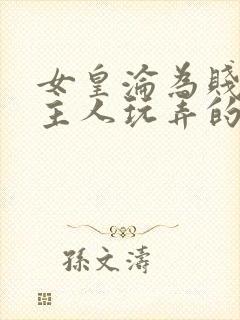 女皇淪為賤
主人玩弄的
孫文濤